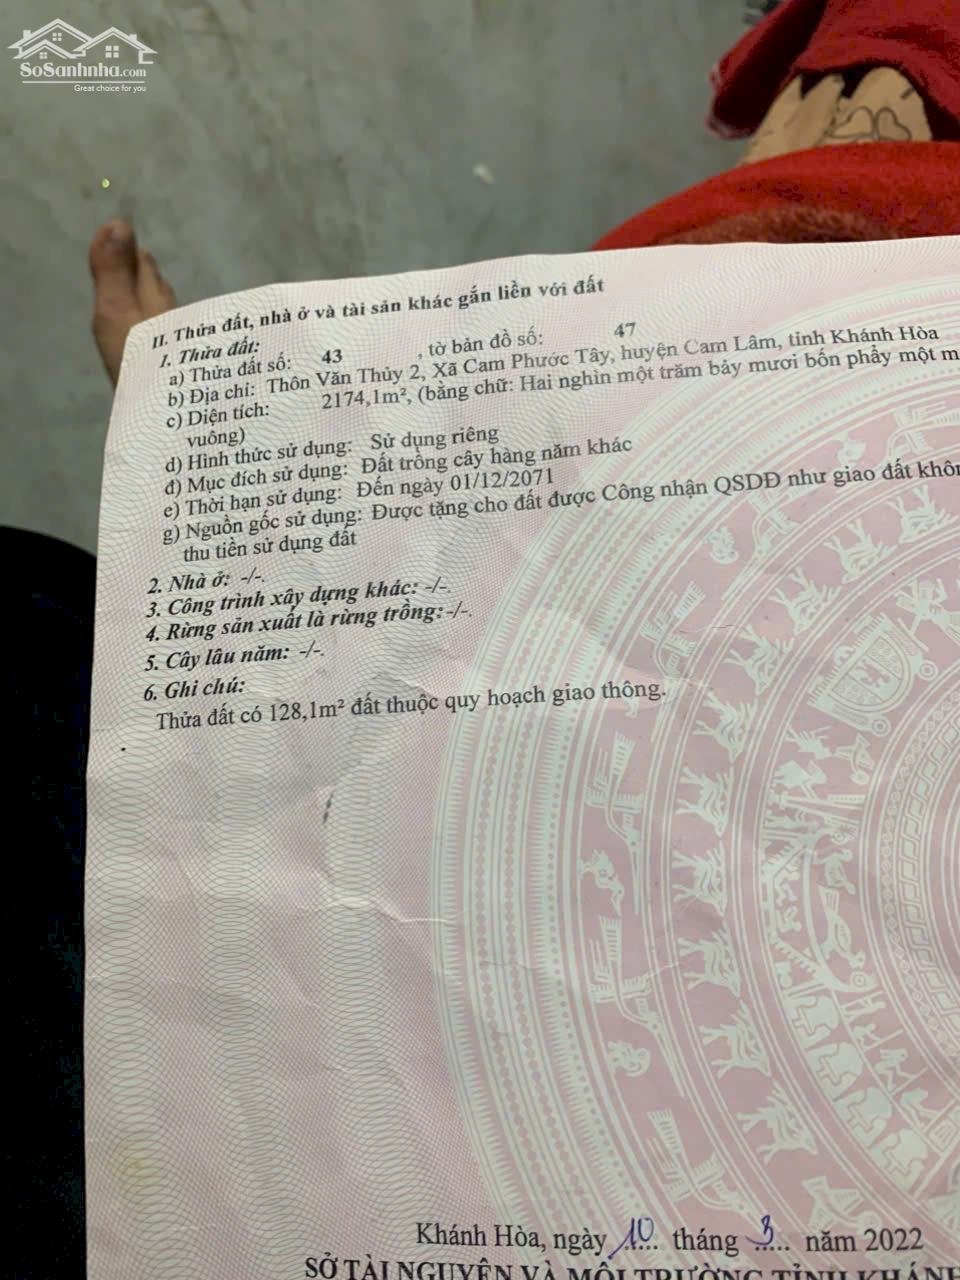 SoSanhnha.com
Great choice for you
II. Thửa đất, nhà ở và tài sản khác gắn liền với đất
1. Thửa đất:
a) Thửa đất số: 43 , tờ bản đồ số: 47
b) Địa chỉ: Thôn Văn Thủy 2, Xã Cam Phước Tây, huyện Cam Lâm, tỉnh Khánh Hòa
c) Diện tích: 2174,1m², (bằng chữ: Hai nghìn một trăm bảy mươi bốn phẩy một m
vuông)
d) Hình thức sử dụng: Sử dụng riêng
đ) Mục đích sử dụng: Đất trồng cây hàng năm khác
e) Thời hạn sử dụng: Đến ngày 01/12/2071
g) Nguồn gốc sử dụng: Được tặng cho đất được Công nhận QSDĐ như giao đất khôn
thu tiền sử dụng đất
2. Nhà ở: -/-.
3. Công trình xây dựng khác: -/-.
4. Rừng sản xuất là rừng trồng: -/-.
5. Cây lâu năm: -/-.
6. Ghi chú:
Thửa đất có 128,1m² đất thuộc quy hoạch giao thông.
Khánh Hòa, ngày 10 tháng 3 năm 2022
SỞ TÀI NGUYÊN VÀ MÔI TRƯỜNG TỈNH KHÁN